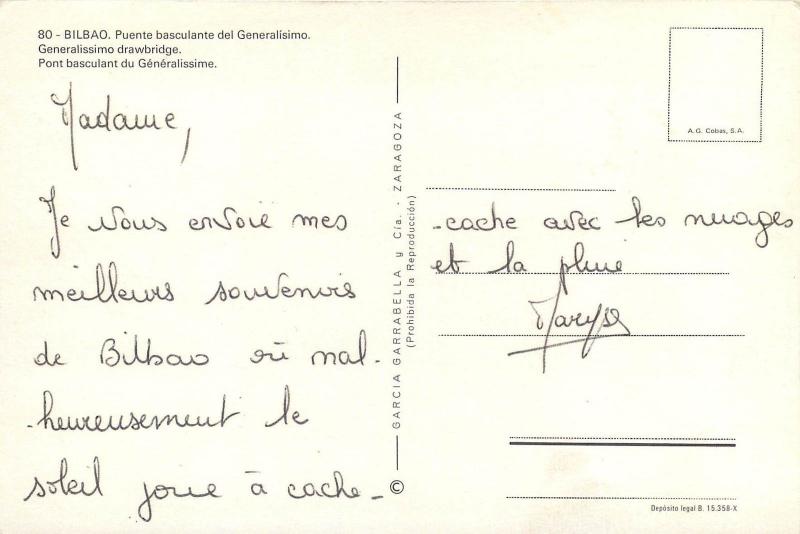 80 - BILBAO. Puente basculante del Generalísimo.
Generalissimo drawbridge.
Pont basculant du Généralissime.
Madame,
Je vous envoie mes
meilleurs souvenirs
de Bilbao où mal-
-heureusement le
soleil joue à cache-
-cache avec les nuages
et la pluie
Maryse
GARCIA GARRABELLA y Cía. - ZARAGOZA
(Prohibida la Reproducción)
©
A.G. Cobas, S.A.
Depósito legal B. 15.358-X